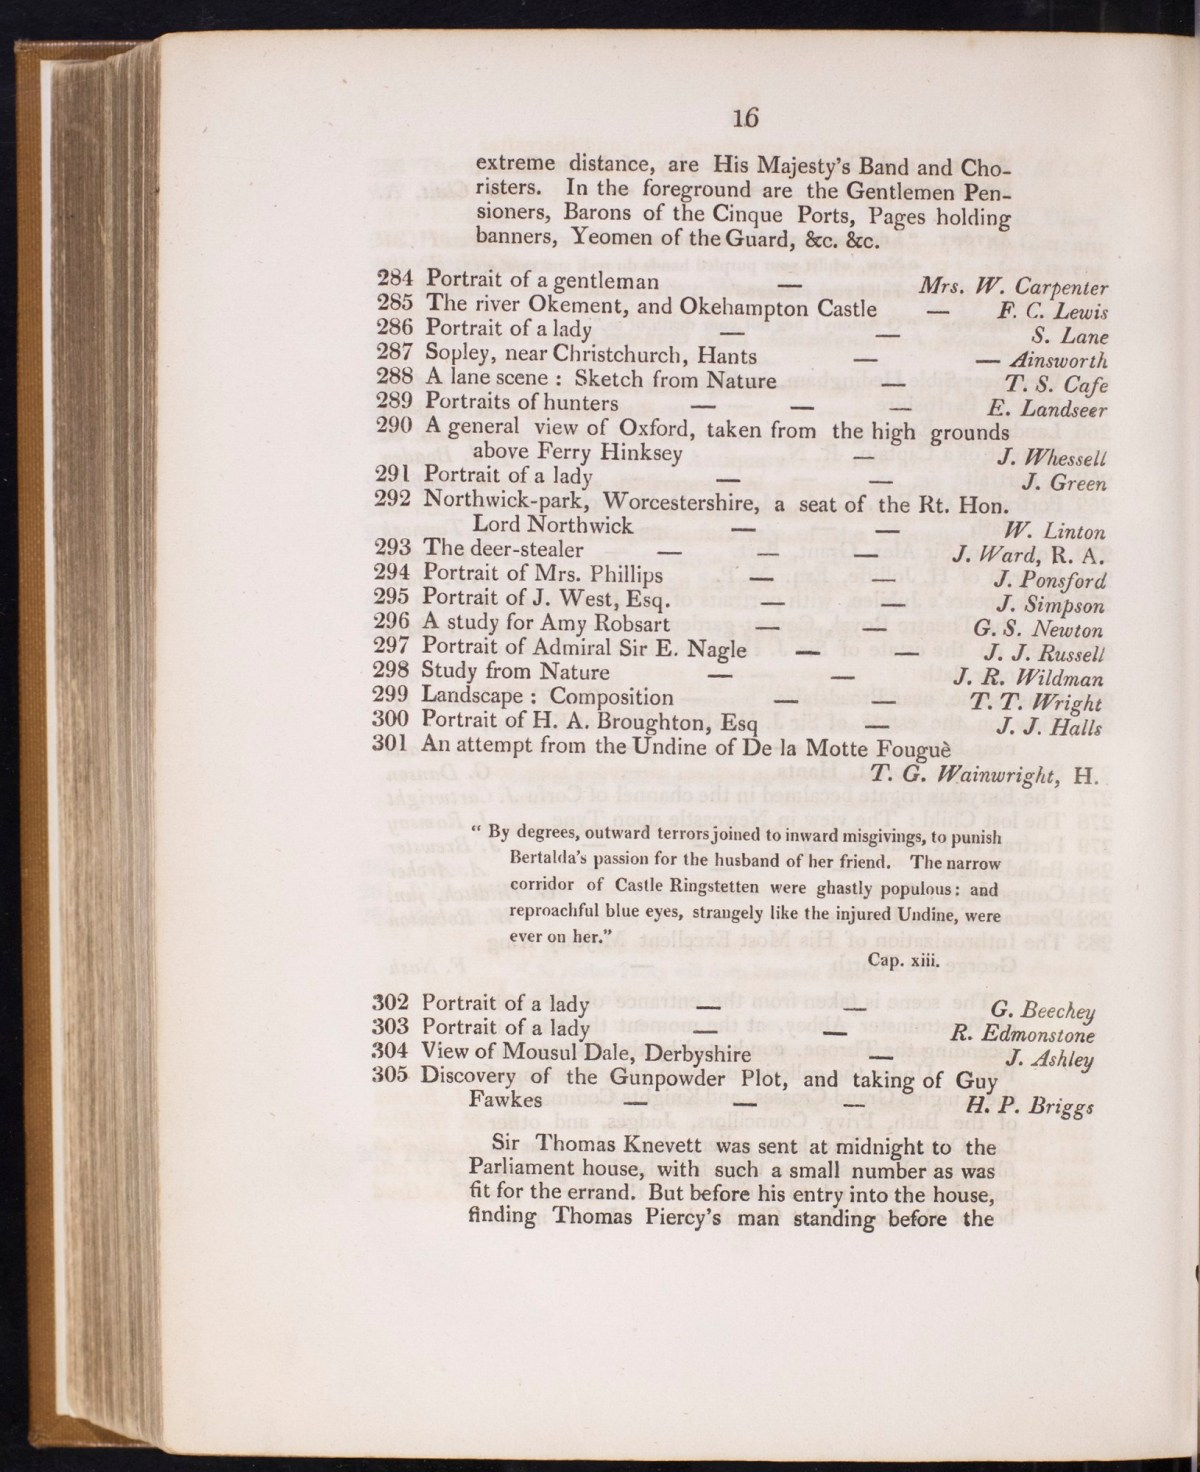 16
extreme distance, are His Majesty's Band and Cho-
risters. In the foreground are the Gentlemen Pen-
sioners, Barons of the Cinque Ports, Pages holding
banners, Yeomen of the Guard, &c. &c.
284 Portrait of a gentleman — Mrs. W. Carpenter
285 The river Okement, and Okehampton Castle — F. C. Lewis
286 Portrait of a lady — — S. Lane
287 Sopley, near Christchurch, Hants — — Ainsworth
288 A lane scene : Sketch from Nature — T. S. Cafe
289 Portraits of hunters — — — E. Landseer
290 A general view of Oxford, taken from the high grounds
above Ferry Hinksey — J. Whessell
291 Portrait of a lady — — J. Green
292 Northwick-park, Worcestershire, a seat of the Rt. Hon.
Lord Northwick — — W. Linton
293 The deer-stealer — — — J. Ward, R. A.
294 Portrait of Mrs. Phillips — — J. Ponsford
295 Portrait of J. West, Esq. — — J. Simpson
296 A study for Amy Robsart — — G. S. Newton
297 Portrait of Admiral Sir E. Nagle — — J. J. Russell
298 Study from Nature — — J. R. Wildman
299 Landscape : Composition — — T. T. Wright
300 Portrait of H. A. Broughton, Esq — J. J. Halls
301 An attempt from the Undine of De la Motte Fouguè
T. G. Wainwright, H.
“ By degrees, outward terrors joined to inward misgivings, to punish
Bertalda's passion for the husband of her friend. The narrow
corridor of Castle Ringstetten were ghastly populous: and
reproachful blue eyes, strangely like the injured Undine, were
ever on her.”
Cap. xiii.
302 Portrait of a lady — — G. Beechey
303 Portrait of a lady — — R. Edmonstone
304 View of Mousul Dale, Derbyshire — J. Ashley
305 Discovery of the Gunpowder Plot, and taking of Guy
Fawkes — — — H. P. Briggs
Sir Thomas Knevett was sent at midnight to the
Parliament house, with such a small number as was
fit for the errand. But before his entry into the house,
finding Thomas Piercy's man standing before the